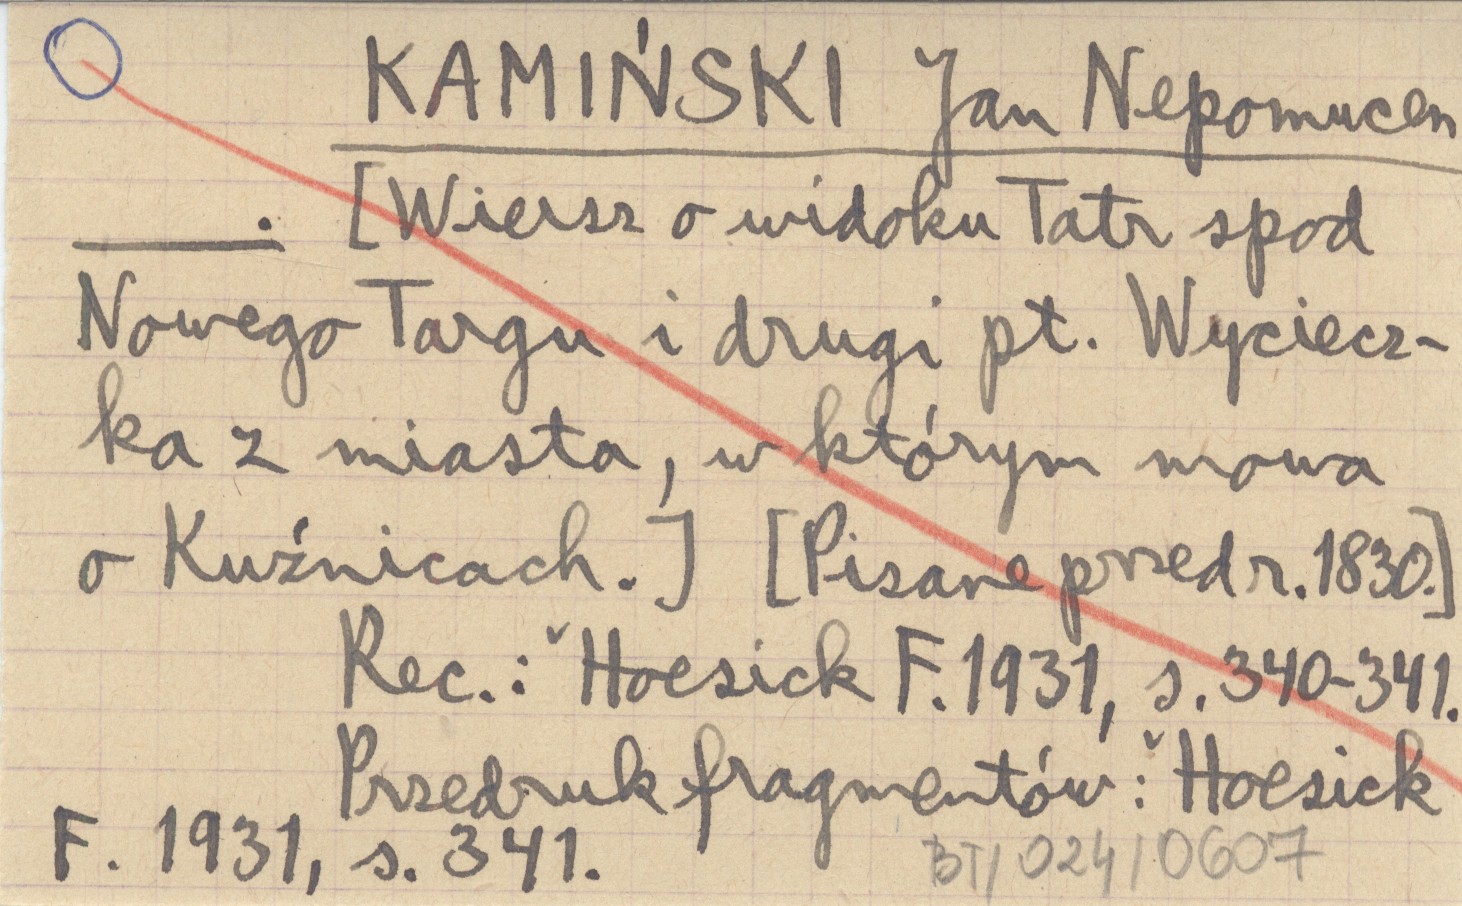 KAMIŃSKI Jan Nepomucen
______. [Wiersz o widoku Tatr spod
Nowego Targu i drugi pt. Wyciecz-
ka z miasta, w którym mowa
o Kuźnicach.] [Pisane przed r. 1830.]
Rec.: ˇHoesick F. 1931, s. 340-341.
Przedruk fragmentów: ˇHoesick
F. 1931, s. 341.
BT/024/0607